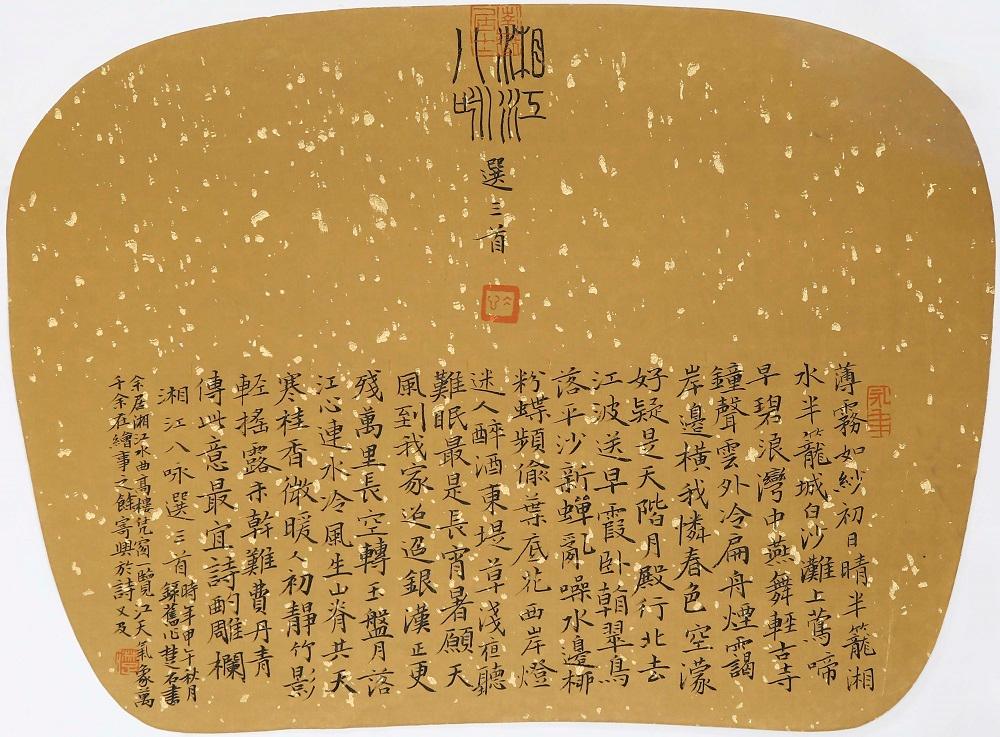 湘江
八咏
選三首
薄霧如紗初日晴半籠湘
水半籠城白沙灘上鶯啼
早碧浪灣中燕舞軽古寺
鐘聲雲外冷扁舟煙靄
岸邊橫我憐春色空濛
好疑是天階月殿行北去
江波送早霞卧翰翠鳥
落平沙新蟬亂噪水邊柳
粉蝶頻偷葉底花西岸燈
迷人醉酒東堤草淺夜聽
難眠最是長宵暑願天
風到我家迢迢銀漢正更
殘萬里長空轉玉盤月落
江心連水冷風生山脊共天
寒桂香微暖人初靜竹影
輕搖露未幹難費丹青
傳此意最宜詩酌雕欄
湘江八咏選三首
時年甲午秋月
錄舊心楚石書
余居湘江水曲高樓凭窗一覽江天氣象萬
千余在繪事之餘寄興於詩又及